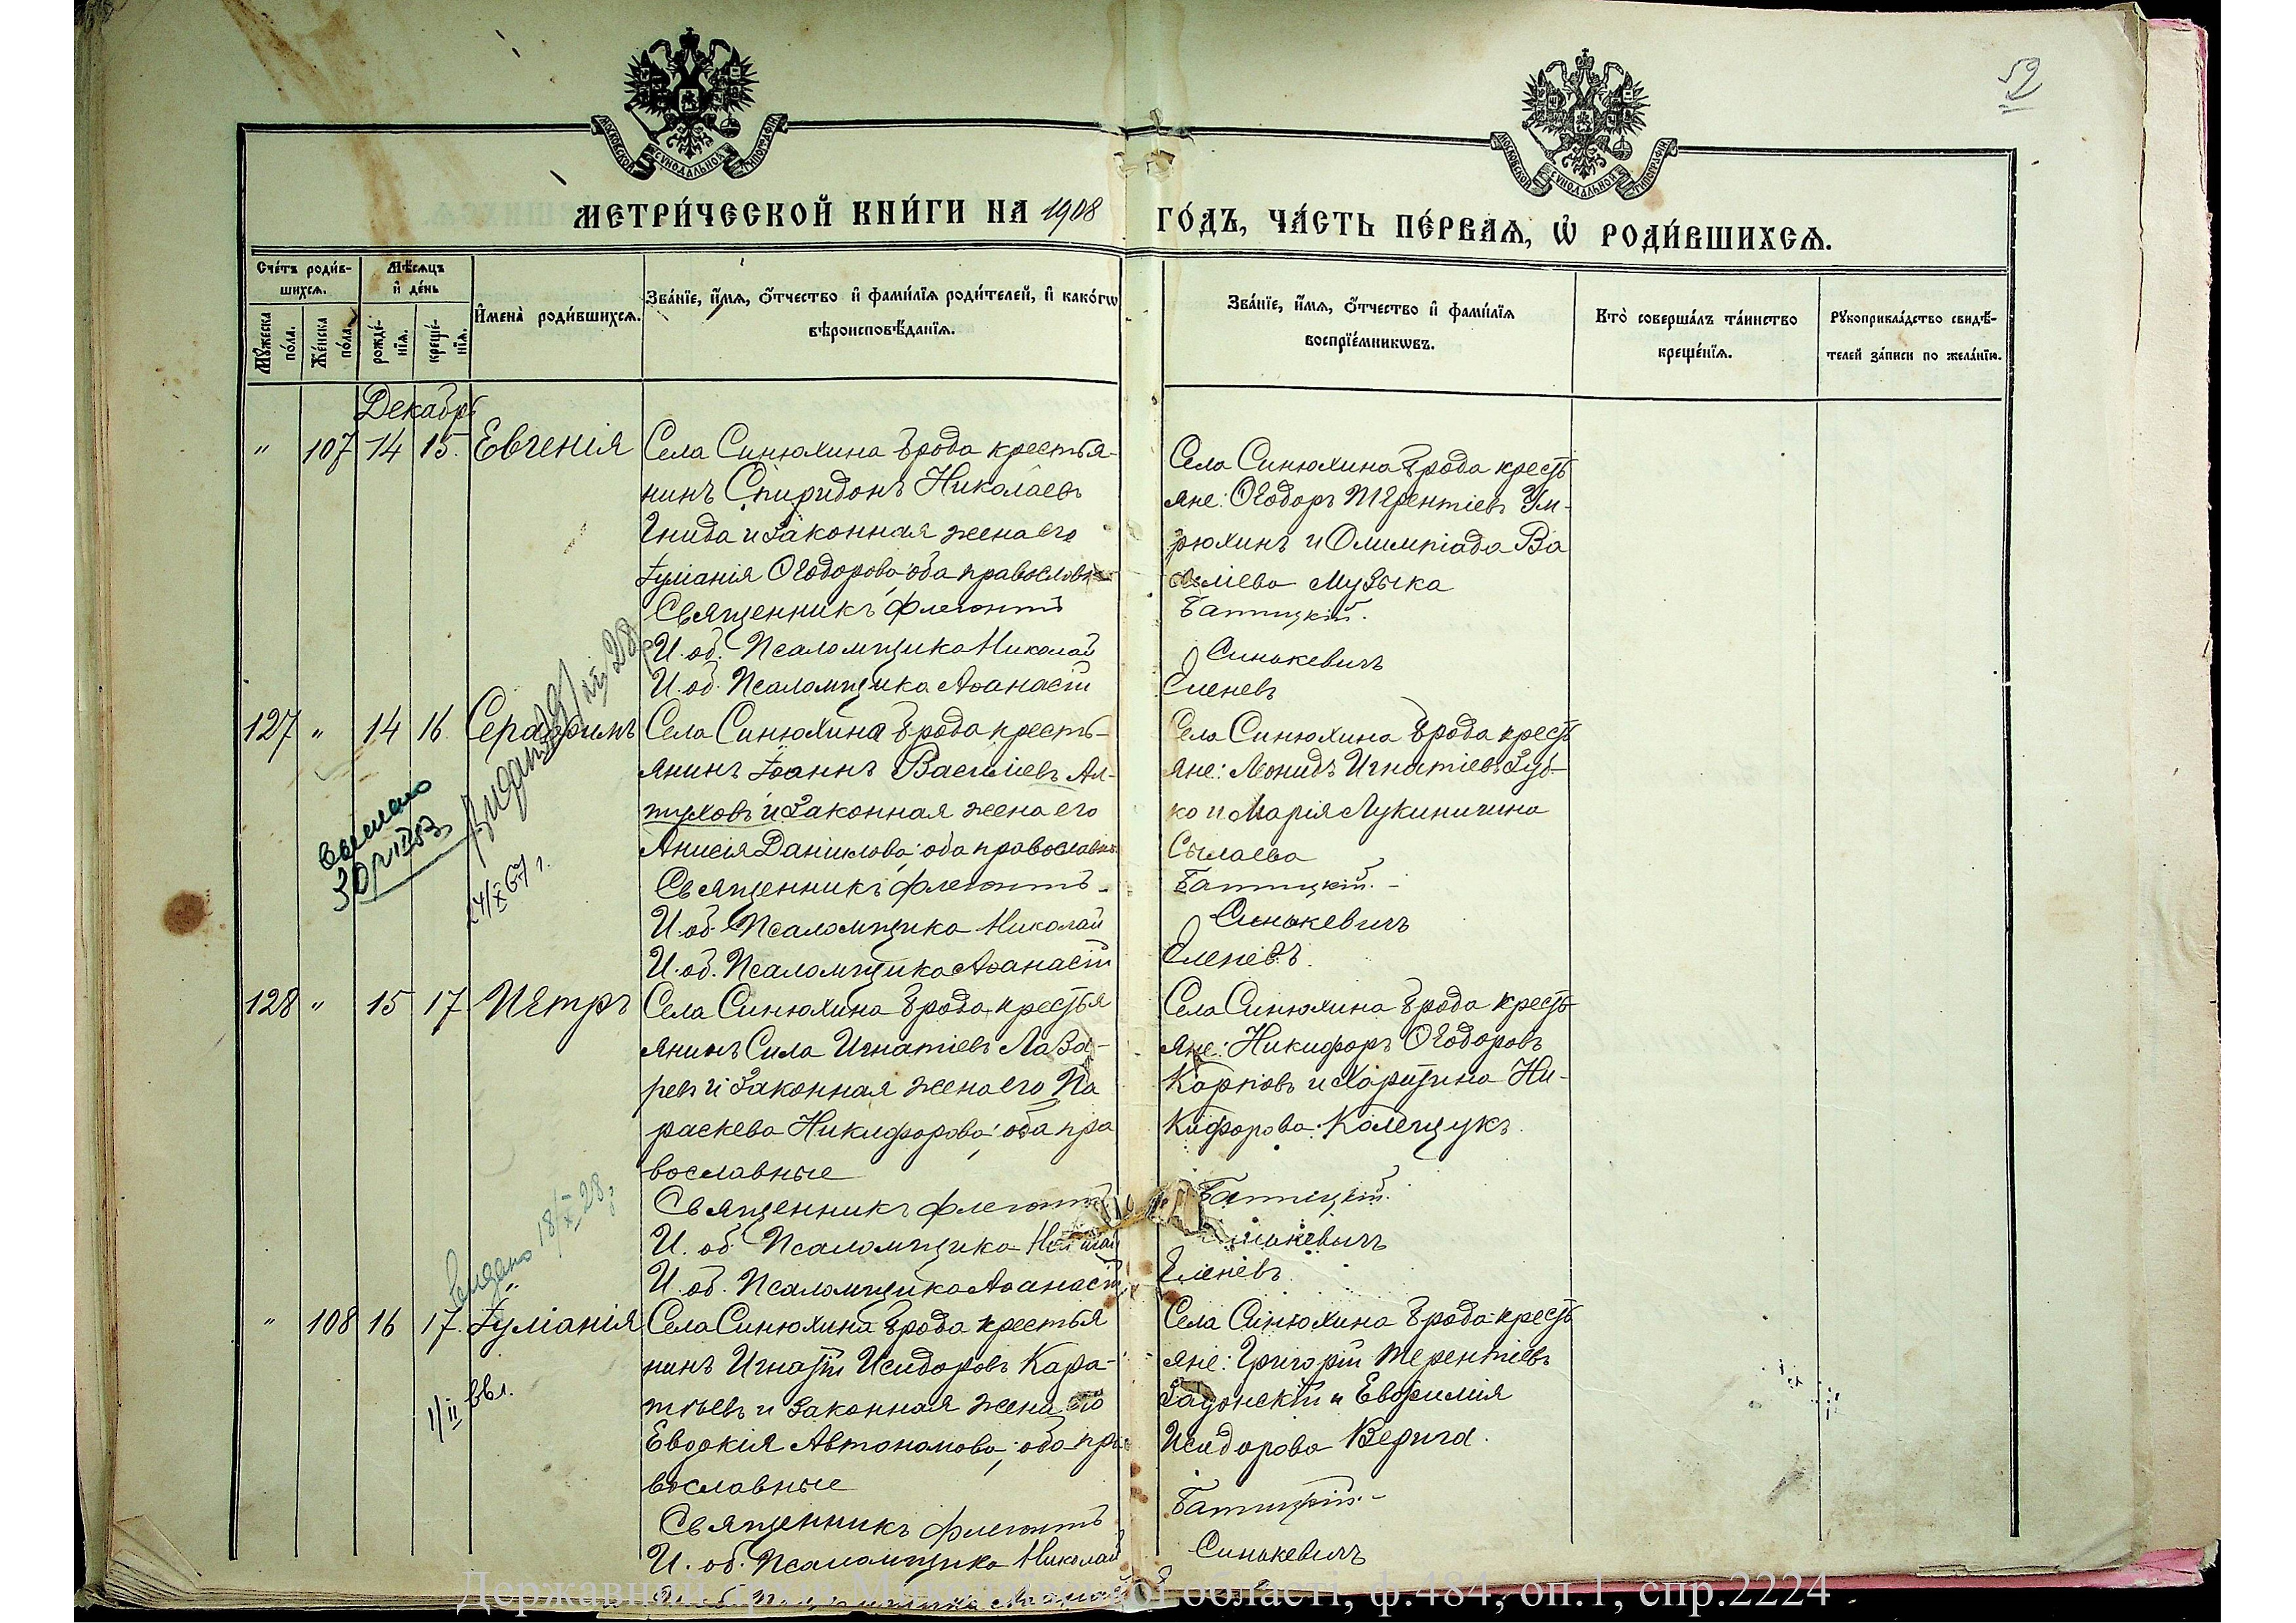 52
МОСКОВСКОЙ СУНОДАЛЬНОЙ ТИПОГРАФІИ
МОСКОВСКОЙ СУНОДАЛЬНОЙ ТИПОГРАФІИ
МЕТРИ́ЧЕСКОЙ КНИ́ГИ НА 1908 ГО́ДЪ, ЧА́СТЬ ПЕ́РВАѦ, Ѡ РОДИ́ВШИХСѦ.
Сче́тъ роди́в-
шихсѧ.
Мꙋжеска по́ла.
Же́нска по́ла.
Мѣ́сѧцъ
и де́нь
рожде́-
нїѧ.
креще́-
нїѧ.
И҆мена̀ роди́вшихсѧ.
Зва́нїе, и҆́мѧ, ѻ҆́тчество и҆ фами́лїѧ роди́телей, и҆ како́гѡ
вѣроисповѣ́данїѧ.
Зва́нїе, и҆́мѧ, ѻ҆́тчество и҆ фами́лїѧ
воспрїе́мникѡвъ.
Кто̀ соверша́лъ та́инство
креще́нїѧ.
Рꙋкоприкла́дство свидѣ́-
телей за́писи по жела́нїю.
Декабрь
" 107 14 15. Евгенія
Села Синюхина Брода крестья-
нинъ Спиридонъ Николаевъ
Гнида и законная жена его
Іуліанія Ѳеодорова оба православн
Священникъ Флегонтъ
И. об. Псаломщика Николай
И. об. Псаломщика Аѳанасій
Села Синюхина Брода кресть
яне: Ѳеодоръ Терентіевъ Ум-
рюхинъ и Олимпіада Ва
силіева Музыка
Батицкій.
Синькевичъ
Еленевъ
127 " 14 16 Серафимъ
Села Синюхина Брода кресть-
янинъ Іоаннъ Василіевъ Ал-
туховъ и законная жена его
Анисія Даніилова; оба православн
Священникъ Флегонтъ
И. об. Псаломщика Николай
И. об. Псаломщика Аѳанасій
Села Синюхина Брода кресть
яне: Леонидъ Игнатіевъ Зуб-
ко и Марія Лукинична
Сылаева
Батицкій.
Синькевичъ
Еленевъ.
24/X 67 г.
128 " 15 17 Петръ
Села Синюхина Брода крестья
янинъ Сила Игнатіевъ Лаза-
ревъ и законная жена его Па
раскева Никифорова; оба пра
вославные
Священникъ Флегонтъ
И. об. Псаломщика Николай
И. об. Псаломщика Аѳанасій
Села Синюхина Брода кресть
яне: Никифоръ Ѳеодоровъ
Карповъ и Харитина Ни-
кифорова Колещукъ.
Батицкій.
Еленевъ.
Видано 18/X 28 г
" 108 16 17. Іуліанія
Села Синюхина Брода крестья
нинъ Игнатій Исидоровъ Кара-
тѣевъ и законная жена его
Евдокія Автономова; оба пра
вославные
Священникъ Флегонтъ
И. об. Псаломщика Николай
Села Синюхина Брода кресть
яне: Григорій Терентіевъ
Задонскій и Евфимія
Исидорова Верига.
Батицкій.
Синькевичъ
Державний архів Миколаївської області, ф.484, оп.1, спр.2224